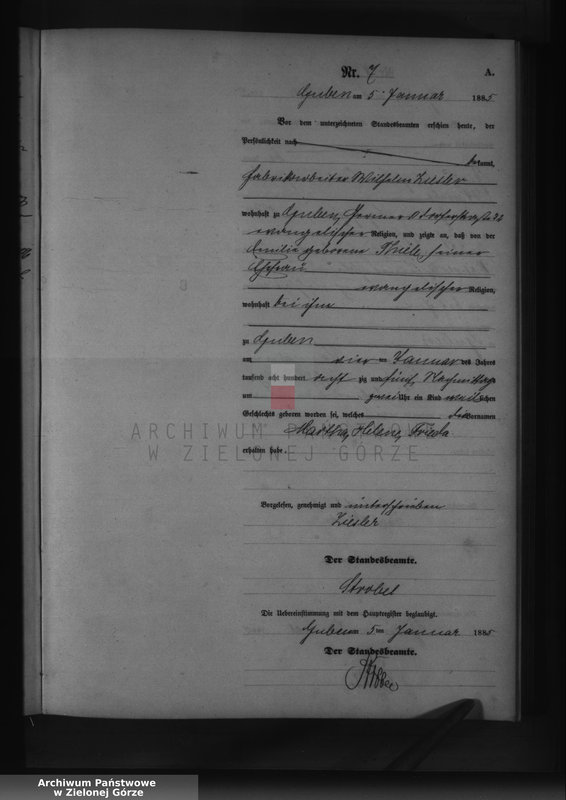 Nr. 7
A.
Guben am 5 Januar 1885
Vor dem unterzeichneten Standesbeamten erschien heute, der
Persönlichkeit nach
bekannt,
Fabrikarbeiter Wilhelm Ziesler
wohnhaft zu Guben,
evangelischer Religion, und zeigte an, daß von der
Emilie geborene Thiele, seiner
Ehefrau
evangelischer Religion,
wohnhaft bei ihm
zu Guben
am vier ten Januar des Jahres
tausend acht hundert acht zig und fünf, Nachmittags
um zwei Uhr ein Kind weiblichen
Geschlechts geboren worden sei, welches die Vornamen
Martha, Helene, Frieda
erhalten habe
Vorgelesen, genehmigt und unterschrieben
Ziesler
Der Standesbeamte.
Strobel
Die Uebereinstimmung mit dem Hauptregister beglaubigt.
Guben am 5 ten Januar 1885
Der Standesbeamte.
ARCHIWUM PAŃSTWOWE
W ZIELONEJ GÓRZE
Archiwum Państwowe
w Zielonej Górze